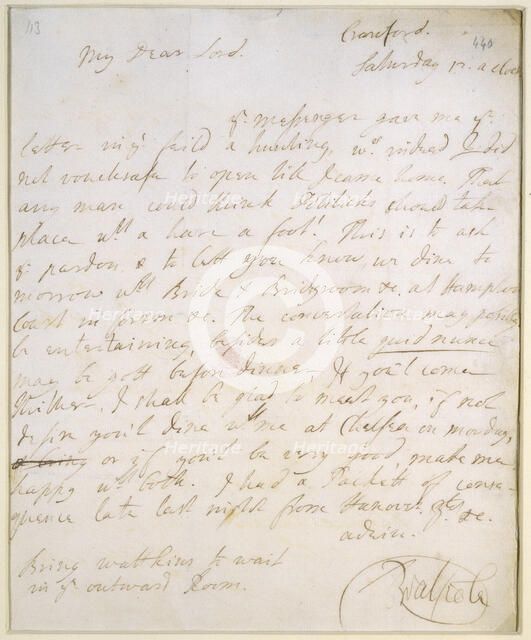 43
440
Craneford.
Saturday 12. a clock
My Dear Lord.
yr. messenger gave me yr.
letter in ye. feild a hunting, wch. indeed I did
not vouchsafe to open till I came home. That
any man could think should take
place wth. a hare a foot! This is to ask
yr. pardon & to lett you know we dine to
morrow wth. Bride & Bridgroom &c. at Hampton
Court in forme &c. The conversation may possibly
be entertaining, besides a little quid nunc
may be gott before dinner, If you'l come
thither, I shall be glad to meet you, if not
desire you'l dine wth. me at Chelsea on monday,
or if you'l be very good, make me
happy wth. both. I had a Packett of conse-
quence late last night from Hanover. &c.
adieu.
Bring wattkins to wait
in ye. outward Room.
RWalpole
Heritage
Heritage
Heritage
Heritage
Heritage
Heritage
C